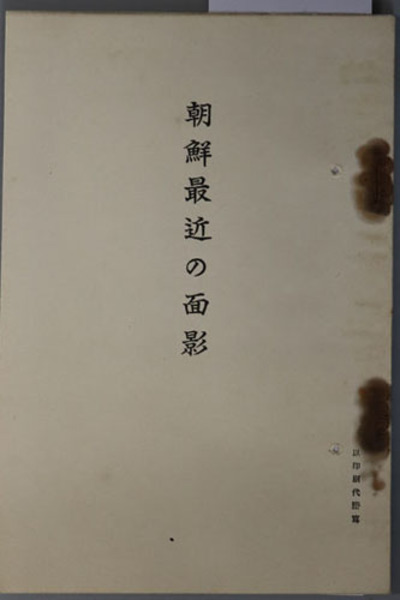 朝鮮最近の面影
以印刷代謄寫